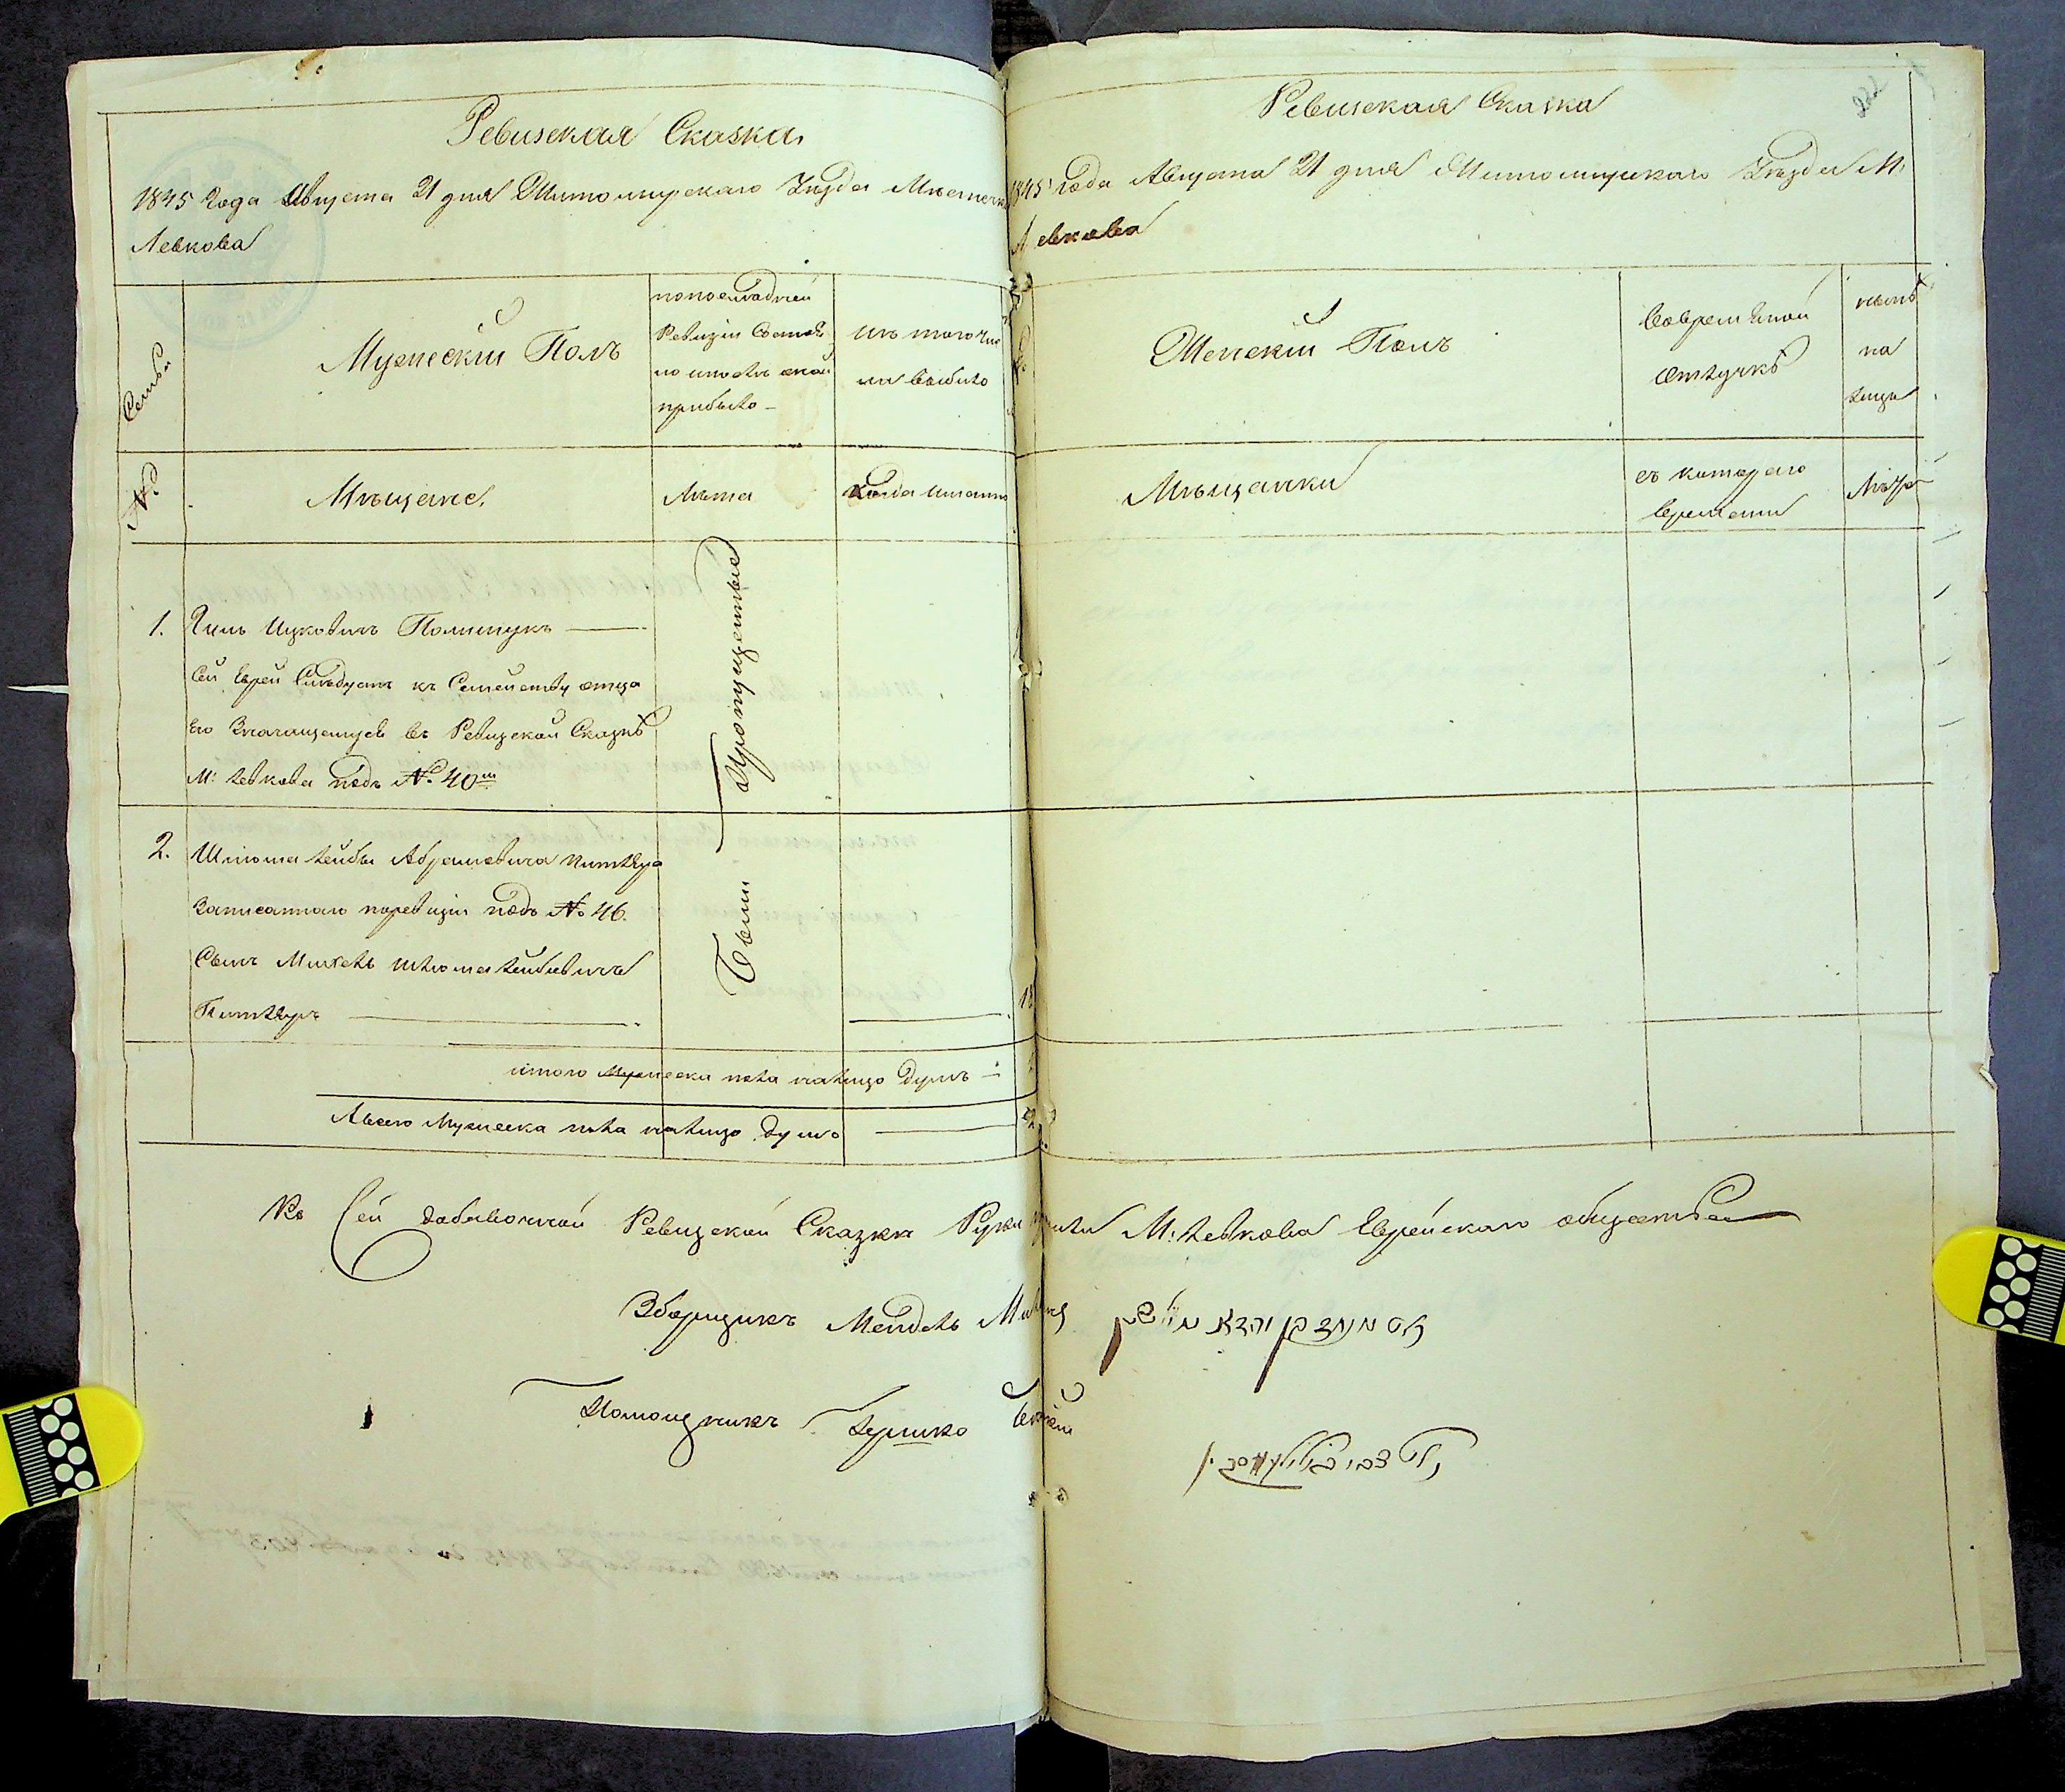 Ревизская Сказка
1845 Года Августа 21 дня Житомирскаго Уѣзда Мѣстечка
Левкова
Семьи
Мужескій Полъ
попоследней
Ревизіи Состоя
ло и после оной
прибыло
Изъ того чис
ла выбыло
№
Мѣщане
Лѣта
Когда именно
1. Хаимъ Ицковичъ Полищукъ
Сей Еврей Следуетъ къ Семейству отца
Его Значащемуся въ Ревизской Сказкѣ
М: Левкова подъ № 40м
Были Пропущенные
2. Шлиома Лейбы Абрамовича Питляра
Записаннаго поревизіи подъ № 46.
Сынъ Михель Шлиомалейбовичъ
Питляръ
18
итого Мужеска пола налицо Душъ
Авсего Мужеска пола налицо Душъ 2
Ревизская Сказка
1845 года Августа 21 дня Житомирскаго Уѣзда М:
Левкова
Женскій Полъ
Вовременной
отлучкѣ
нынѣ
на
лицо
Мѣщанки
съ котораго
времени
Лѣта
Къ Сей добавочной Ревизской Сказки М: Левкова Еврейскаго общества
Зборщикъ Мендель
Помощникъ Гершко